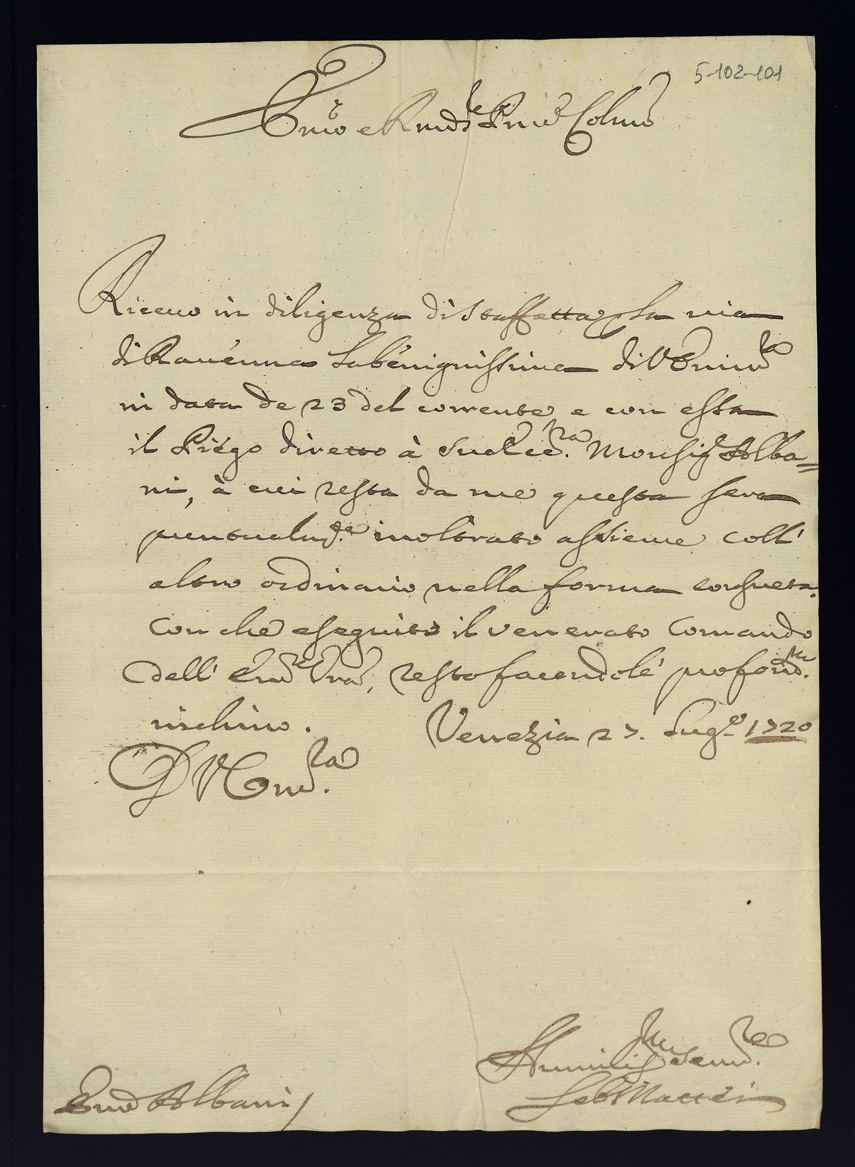 5-102-101
Em̃o e Rmõ Sig.re Prñe Colmõ
Riceuo in diligenza di Staffetta p la uia
di Rauenna la benignissima di V Emin.za
in data de 23 del corrente, e con essa
il Piego diretto à Sua Ecc.za Monsig.r Alba=
ni, à cui resta da me questa sera
puntualm.te inoltrato assieme coll'
altro ordinario nella forma consueta.
Con che eseguito il venerato Comando
dell' Em̃a Vrã, resto facendole profond.mo
inchino. Venezia 27. Lug.o 1720
D V Em̃.za
Humiliss.mo Seru.re
Em̃o Albani Seb Mattei